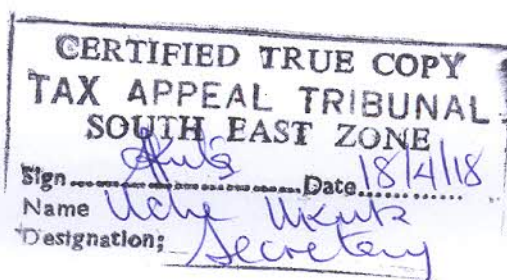 CERTIFIED TRUE COPY
TAX APPEAL TRIBUNAL
SOUTH EAST ZONE
Sign.......................Date 18/4/18
Name Uche
Designation; Secretary